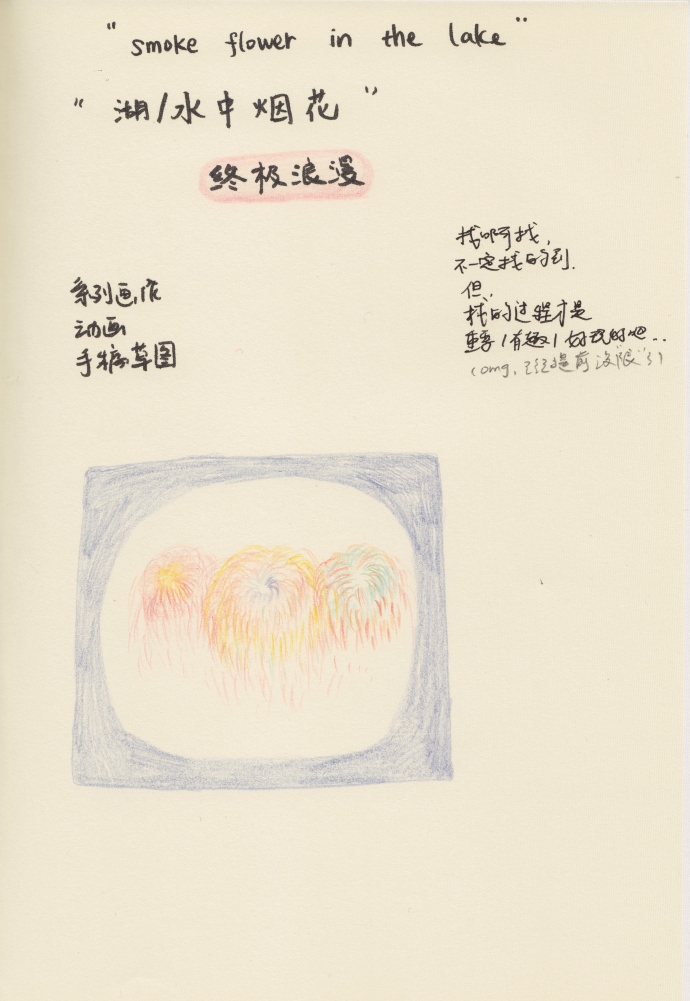 "smoke flower in the lake"
"湖/水中烟花"
終极浪漫
找啊找,
不一定找的到.
但,
找的过程才是
重要/有趣/好玩的吧..
(omg, 已经提前设"限"了)
系列画作
动画
手稿草图